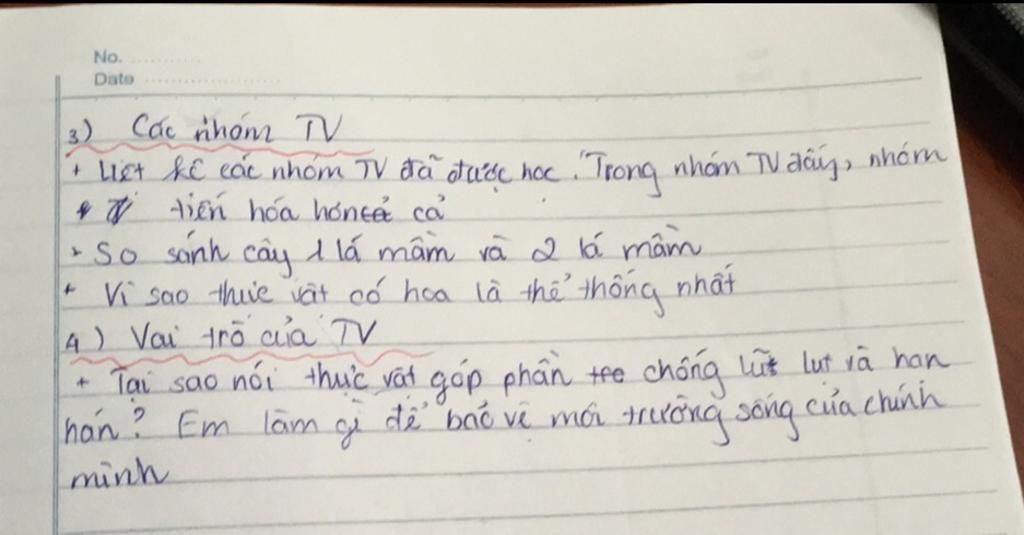 No. ............
Date ........................
3) Các nhóm TV
+ Liệt kê các nhóm TV đã được học. Trong nhóm TV đấy, nhóm
tiến hóa hơn cả
+ So sánh cây 1 lá mầm và 2 lá mầm
+ Vì sao thực vật có hoa là thể thống nhất
4) Vai trò của TV
+ Tại sao nói thực vật góp phần chống lũ lụt và hạn
hán? Em làm gì để bảo vệ môi trường sống của chính
mình